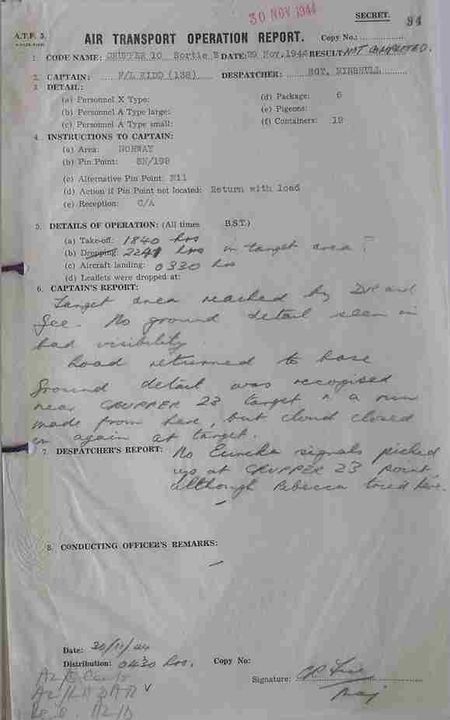 30 NOV 1944
SECRET.
94
A.T.F. 5.
AIR TRANSPORT OPERATION REPORT.
Copy No.:
1. CODE NAME: CRUPPER 10 Sortie DATE: 29 Nov. 1944 RESULT: NOT COMPLETED.
2. CAPTAIN: F/L KIDD (138) DESPATCHER: SGT.
3. DETAIL:
(a) Personnel X Type:
(b) Personnel A Type large:
(c) Personnel A Type small:
(d) Package: 6
(e) Pigeons:
(f) Containers: 12
4. INSTRUCTIONS TO CAPTAIN:
(a) Area: NORWAY
(b) Pin Point:
(c) Alternative Pin Point: N11
(d) Action if Pin Point not located: Return with load
(e) Reception: C/A
5. DETAILS OF OPERATION: (All times B.S.T.)
(a) Take-off: 1840 hrs
(b) Dropping: 2241 hrs in target area
(c) Aircraft landing: 0330 hrs
(d) Leaflets were dropped at:
6. CAPTAIN'S REPORT:
Target area reached by DR and
Gee. No ground detail seen in
bad visibility
Load returned to base
Ground detail was recognised
near CRUPPER 23 target & a run
made from here, but cloud closed
in again at target.
7. DESPATCHER'S REPORT: No Eureka signals picked
up at CRUPPER 23 point,
although Rebecca tried here.
8. CONDUCTING OFFICER'S REMARKS:
Date: 30/11/44
Distribution: 0430 hrs. Copy No:
Signature:
Maj